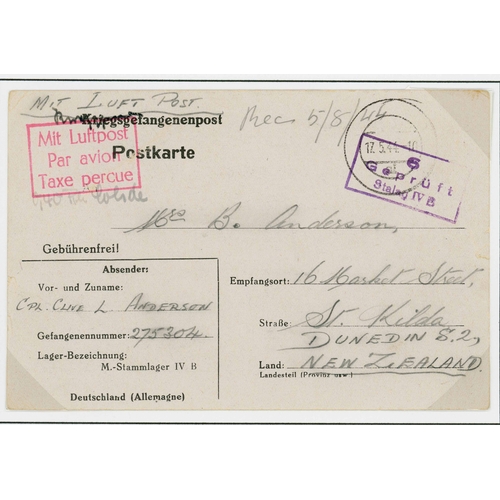 MIT LUFT POST.
Kriegsgefangenenpost
Rec 5/8/44
Mit Luftpost
Par avion
Taxe perçue
Postkarte
17.5.44-10
6
Geprüft
Stalag IV B
Mrs B. Anderson,
Gebührenfrei!
Absender:
Vor- und Zuname:
CPL. CLIVE L. ANDERSON
Gefangenennummer: 275304.
Lager-Bezeichnung:
M.-Stammlager IV B
Deutschland (Allemagne)
Empfangsort: 16 Market Street,
Straße: St. Kilda
DUNEDIN S.2,
Land: NEW ZEALAND.
Landesteil (Provinz usw.)